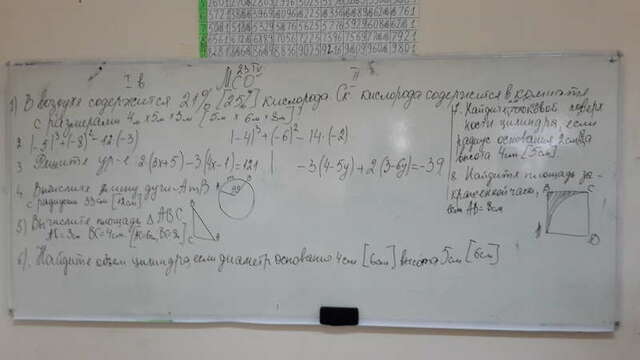 I в МСО 23 IV II в
1) В воздухе содержится 21% [25%] кислорода. Ск. кислорода содержится в комнате
с размерами 4м х 5м х 3м [5м х 6м х 3м]
2. |-2|³+(-8)²-12·(-3) |-4|³+(-6)²-14·(-2)
3. Решите ур-е 2(3x+5)-3(4x-1)=121 | -3(4-5y)+2(3-6y)=-39
4. Вычислите длину дуги AmB
с радиусом 33см [12см]
5) Вычислите площадь Δ ABC
BC=4см
6). Найдите объем цилиндра, если диаметр основания 4см [6см] высота 5см [6см]
7. Найдите площадь боковой поверх
ности цилиндра, если
радиус основания 2см, а
высота 4см [5см].
8. Найдите площадь за-
крашенной части,
если AB=8см
A m B
A B C
B C
A D